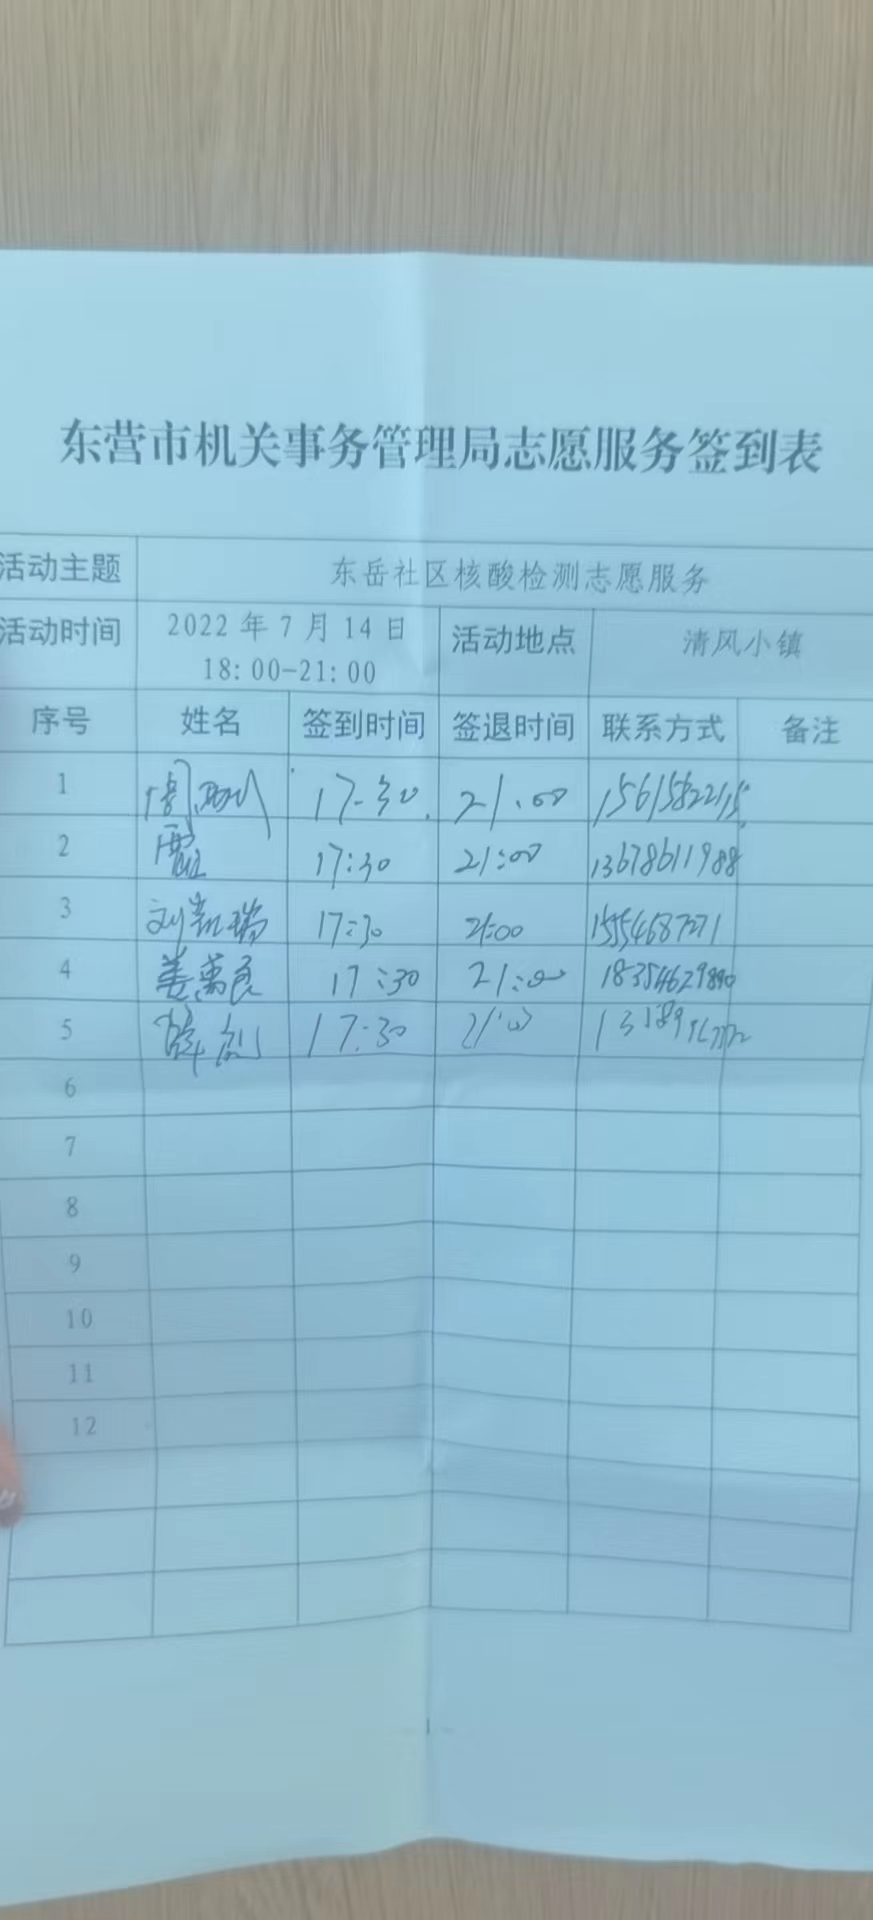 东营市机关事务管理局志愿服务签到表
活动主题 东岳社区核酸检测志愿服务
活动时间 2022年7月14日 18:00-21:00 活动地点 清风小镇
序号 姓名 签到时间 签退时间 联系方式 备注
1 17-30 21:00
2 17:30 21:00 13678611988
3 刘凯瑞 17:30 21:00 15554687271
4 姜万良 17:30 21:00
5 薛 17:30 21:00
6
7
8
9
10
11
12